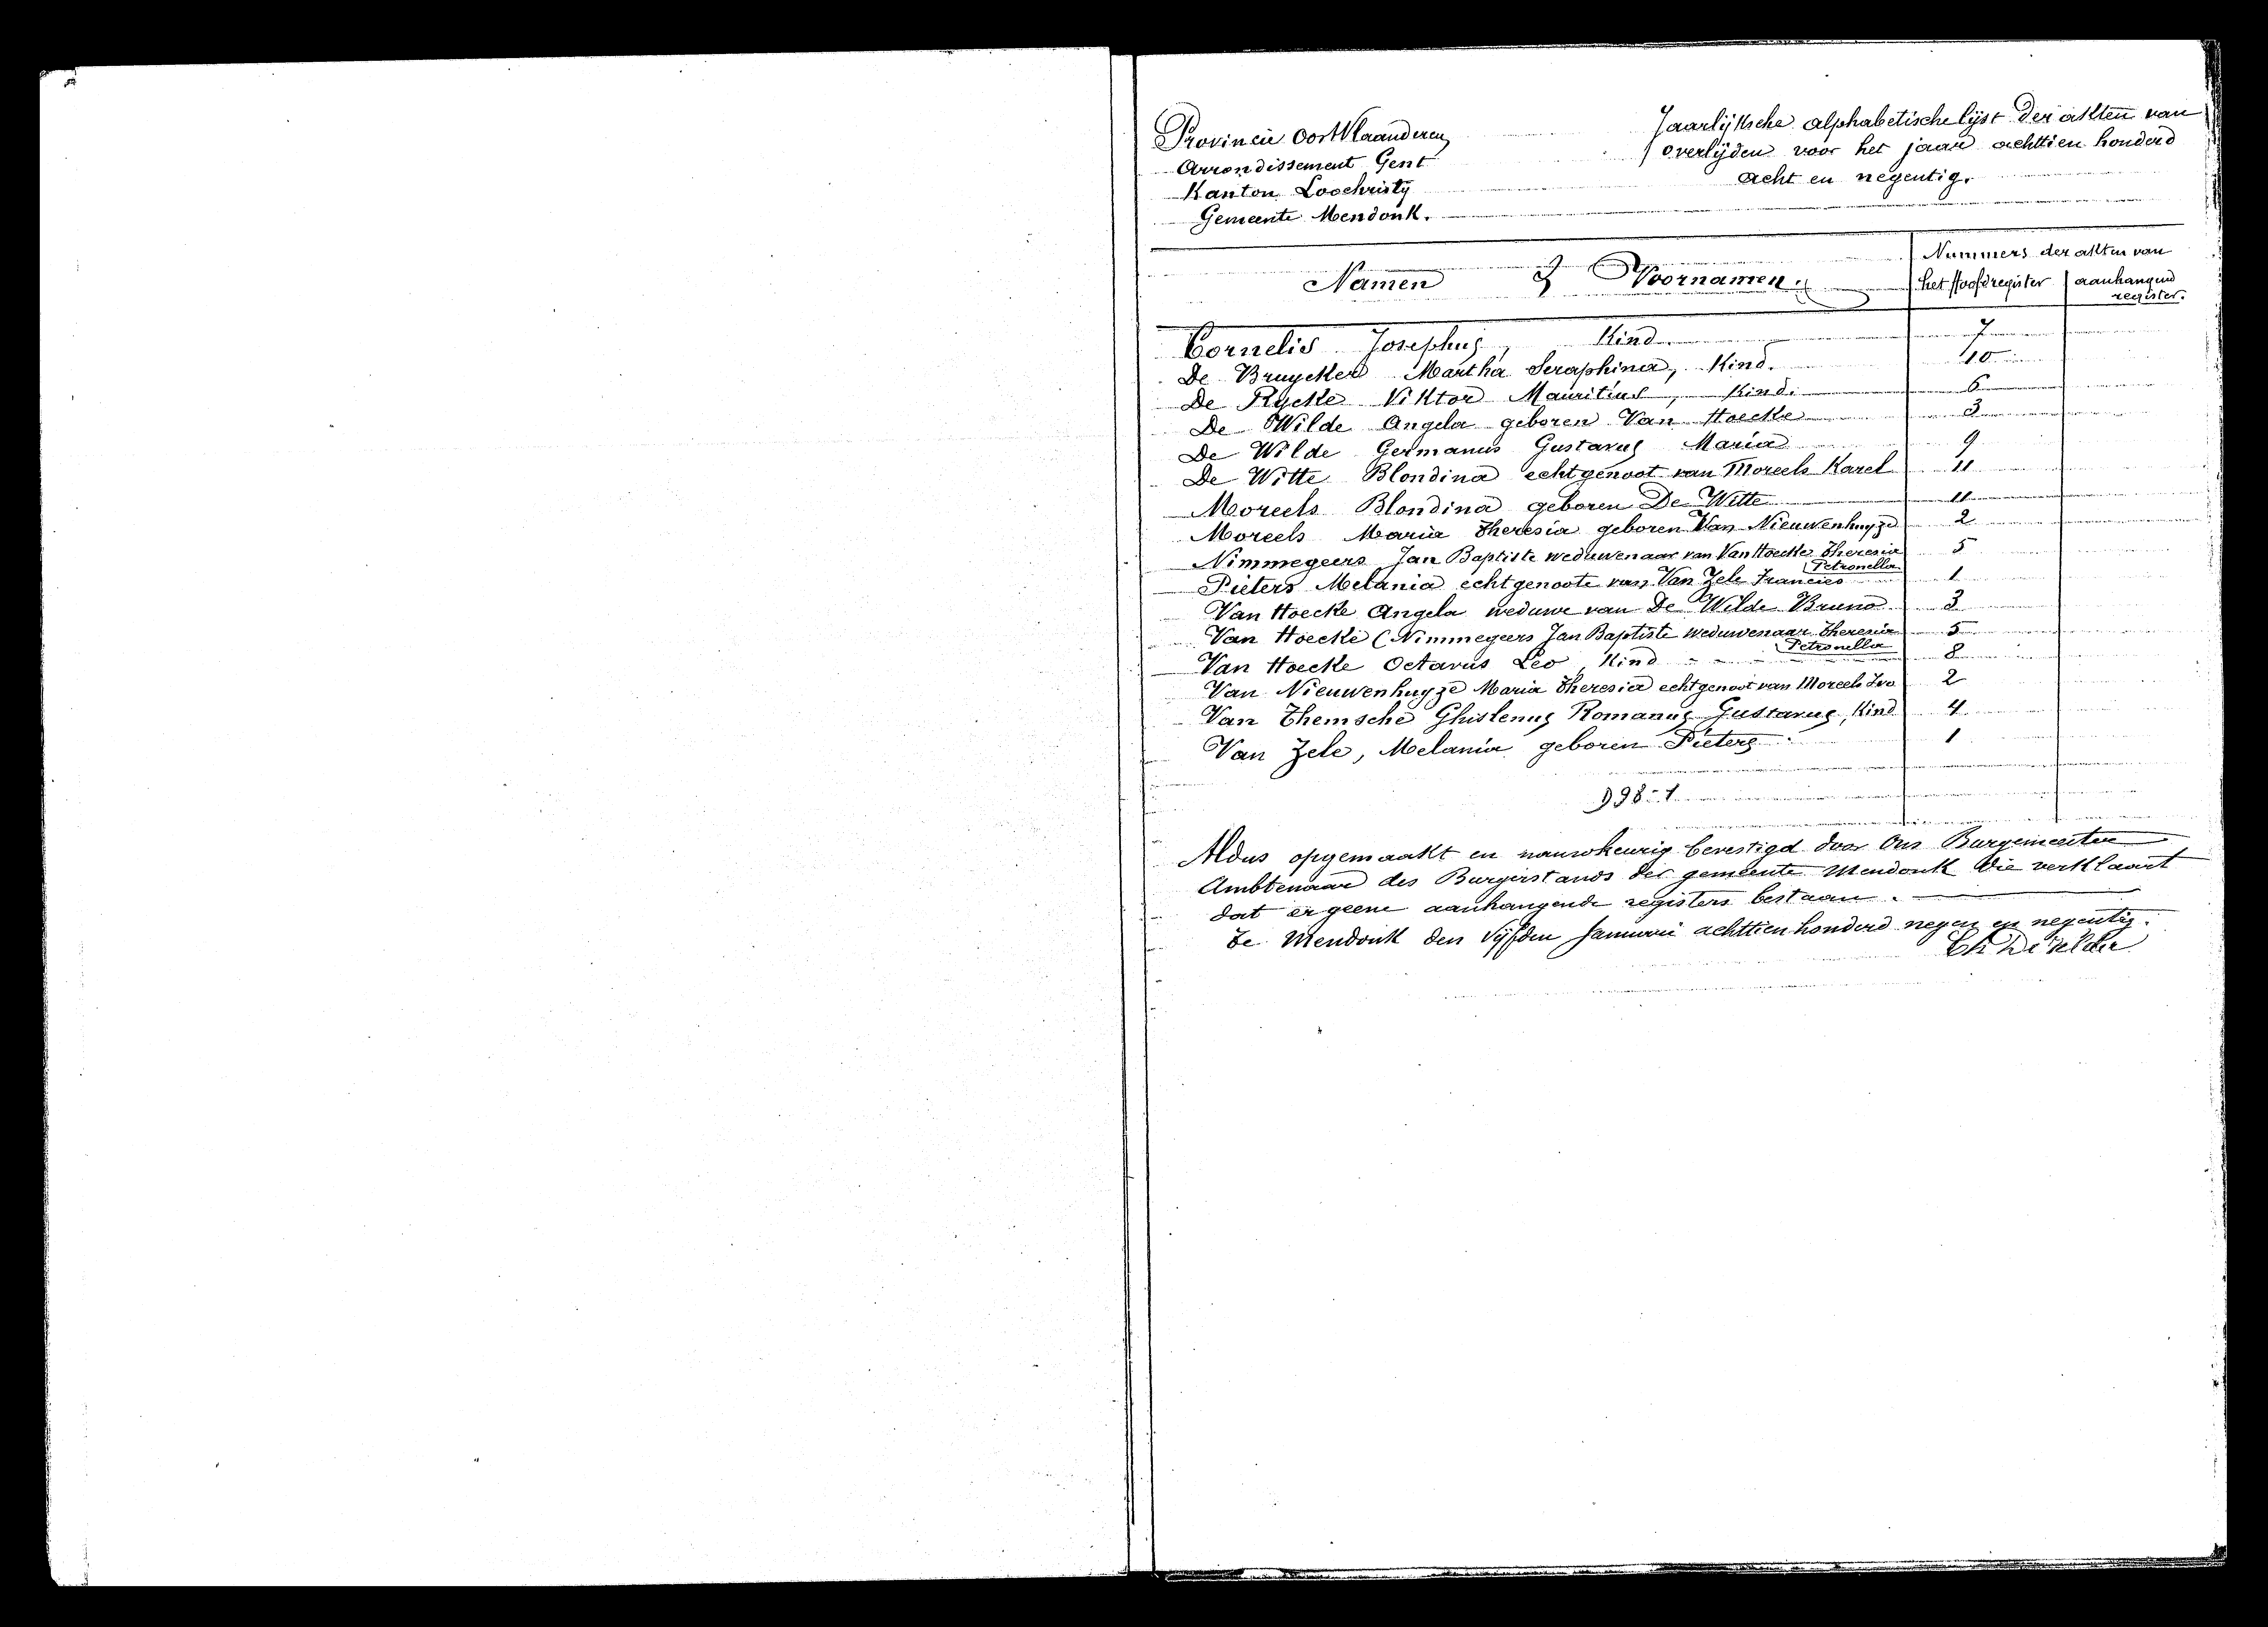 Provincie Oost Vlaanderen
Arrondissement Gent
Kanton Loochristy
Gemeente Mendonk.
Jaarlijksche alphabetische lijst der akten van
overlijden voor het jaar achttien honderd
acht en negentig.
Namen & Voornamen.
Nummers der akten van
het Hoofdregister
aanhangend
register.
Cornelis Josephus, Kind. 7
De Bruycker Martha Seraphina, Kind. 10
De Rycke Viktor Mauritius, Kind. 6
De Wilde Angela geboren Van Hoecke 3
De Wilde Germanus Gustavus Maria 9
De Witte Blondina echtgenoot van Moreels Karel 11
Moreels Blondina geboren De Witte 11
Moreels Maria Theresia geboren Van Nieuwenhuyze 2
Nimmegeers Jan Baptiste weduwenaar van Van Hoecke Theresia 5
Petronella
Pieters Melania echtgenoote van Van Zele Francies 1
Van Hoecke Angela weduwe van De Wilde Bruno 3
Van Hoecke (Nimmegeers Jan Baptiste weduwenaar Theresia 5
Petronella
Van Hoecke Octavus Leo, Kind 8
Van Nieuwenhuyze Maria Theresia echtgenoot van Moreels Ivo 2
Van Themsche Ghislenus Romanus Gustavus, Kind 4
Van Zele, Melania geboren Pieters 1
Aldus opgemaakt en nauwkeurig bevestigd door Ons Burgemeester
Ambtenaar des Burgerstands der gemeente Mendonk die verklaart
dat er geene aanhangende registers bestaan.
Te Mendonk den Vijfden Januari achttien honderd negen en negentig.